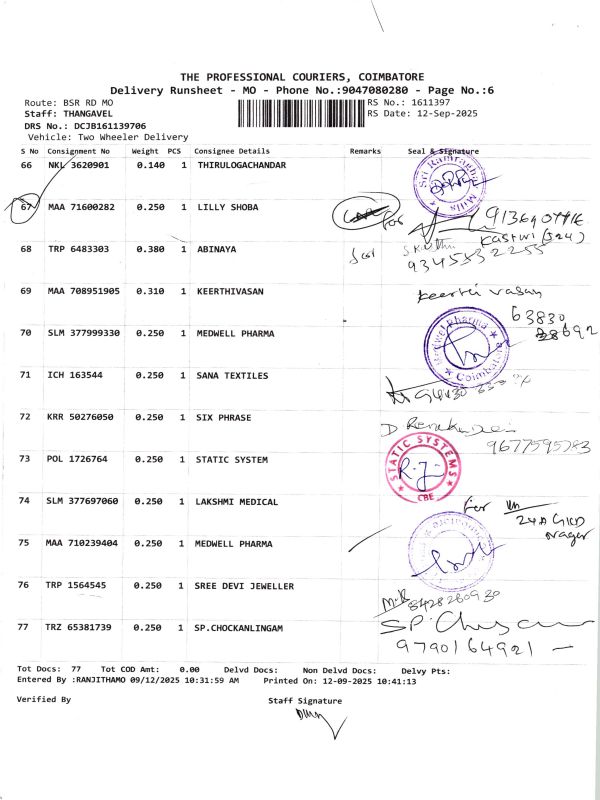 THE PROFESSIONAL COURIERS, COIMBATORE
Delivery Runsheet - MO - Phone No.:9047080280 - Page No.:6
Route: BSR RD MO
RS No.: 1611397
Staff: THANGAVEL
RS Date: 12-Sep-2025
DRS No.: DCJB161139706
Vehicle: Two Wheeler Delivery
S No Consignment No Weight PCS Consignee Details Remarks Seal & Signature
66 NKL 3620901 0.140 1 THIRULOGACHANDAR
67 MAA 71600282 0.250 1 LILLY SHOBA
68 TRP 6483303 0.380 1 ABINAYA
9345532255
69 MAA 708951905 0.310 1 KEERTHIVASAN Keerthi vasan
63830
70 SLM 377999330 0.250 1 MEDWELL PHARMA
71 ICH 163544 0.250 1 SANA TEXTILES
72 KRR 50276050 0.250 1 SIX PHRASE
73 POL 1726764 0.250 1 STATIC SYSTEM STATIC SYSTEMS CBE
74 SLM 377697060 0.250 1 LAKSHMI MEDICAL For
24A GKD
nagar
75 MAA 710239404 0.250 1 MEDWELL PHARMA
76 TRP 1564545 0.250 1 SREE DEVI JEWELLER
77 TRZ 65381739 0.250 1 SP.CHOCKANLINGAM
9790164921
Tot Docs: 77 Tot COD Amt: 0.00 Delvd Docs: Non Delvd Docs: Delvy Pts:
Entered By :RANJITHAMO 09/12/2025 10:31:59 AM Printed On: 12-09-2025 10:41:13
Verified By Staff Signature